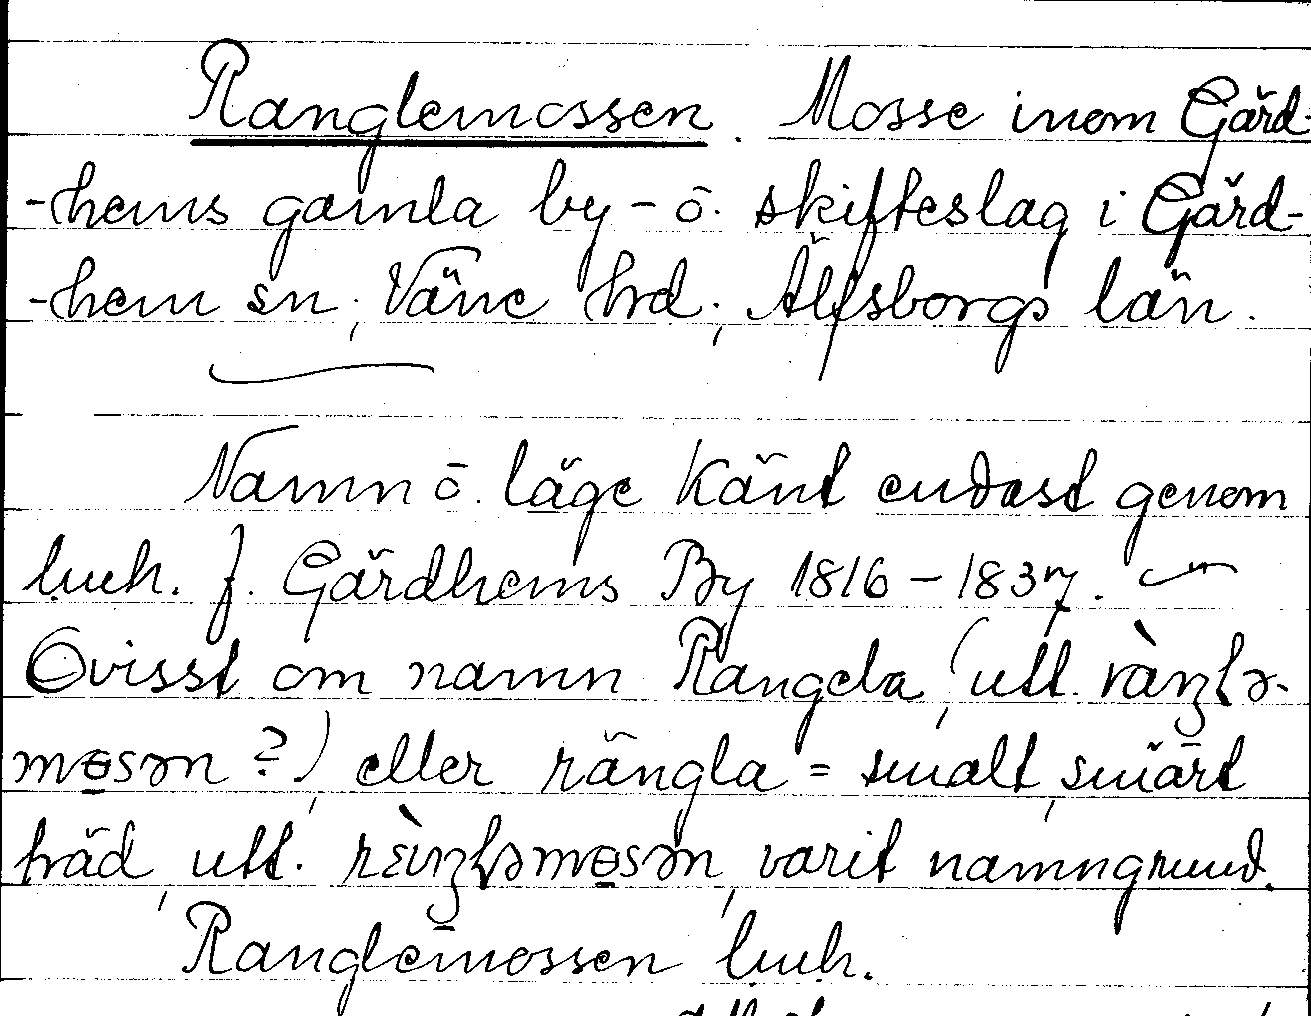 Ranglemossen. Mosse inom Gärd-
-hems gamla by- ō. skifteslag i Gärd-
-hem sn, Väne hrd, Älfsborgs län.
Namn ō. läge känt endast genom
luuh. f. Gärdhems By 1816-1837.
Ovisst om namn Rangela, (utt.
?), eller rängla = smalt, smärt
träd, utt. varit namngrund.
Ranglemossen luuh.